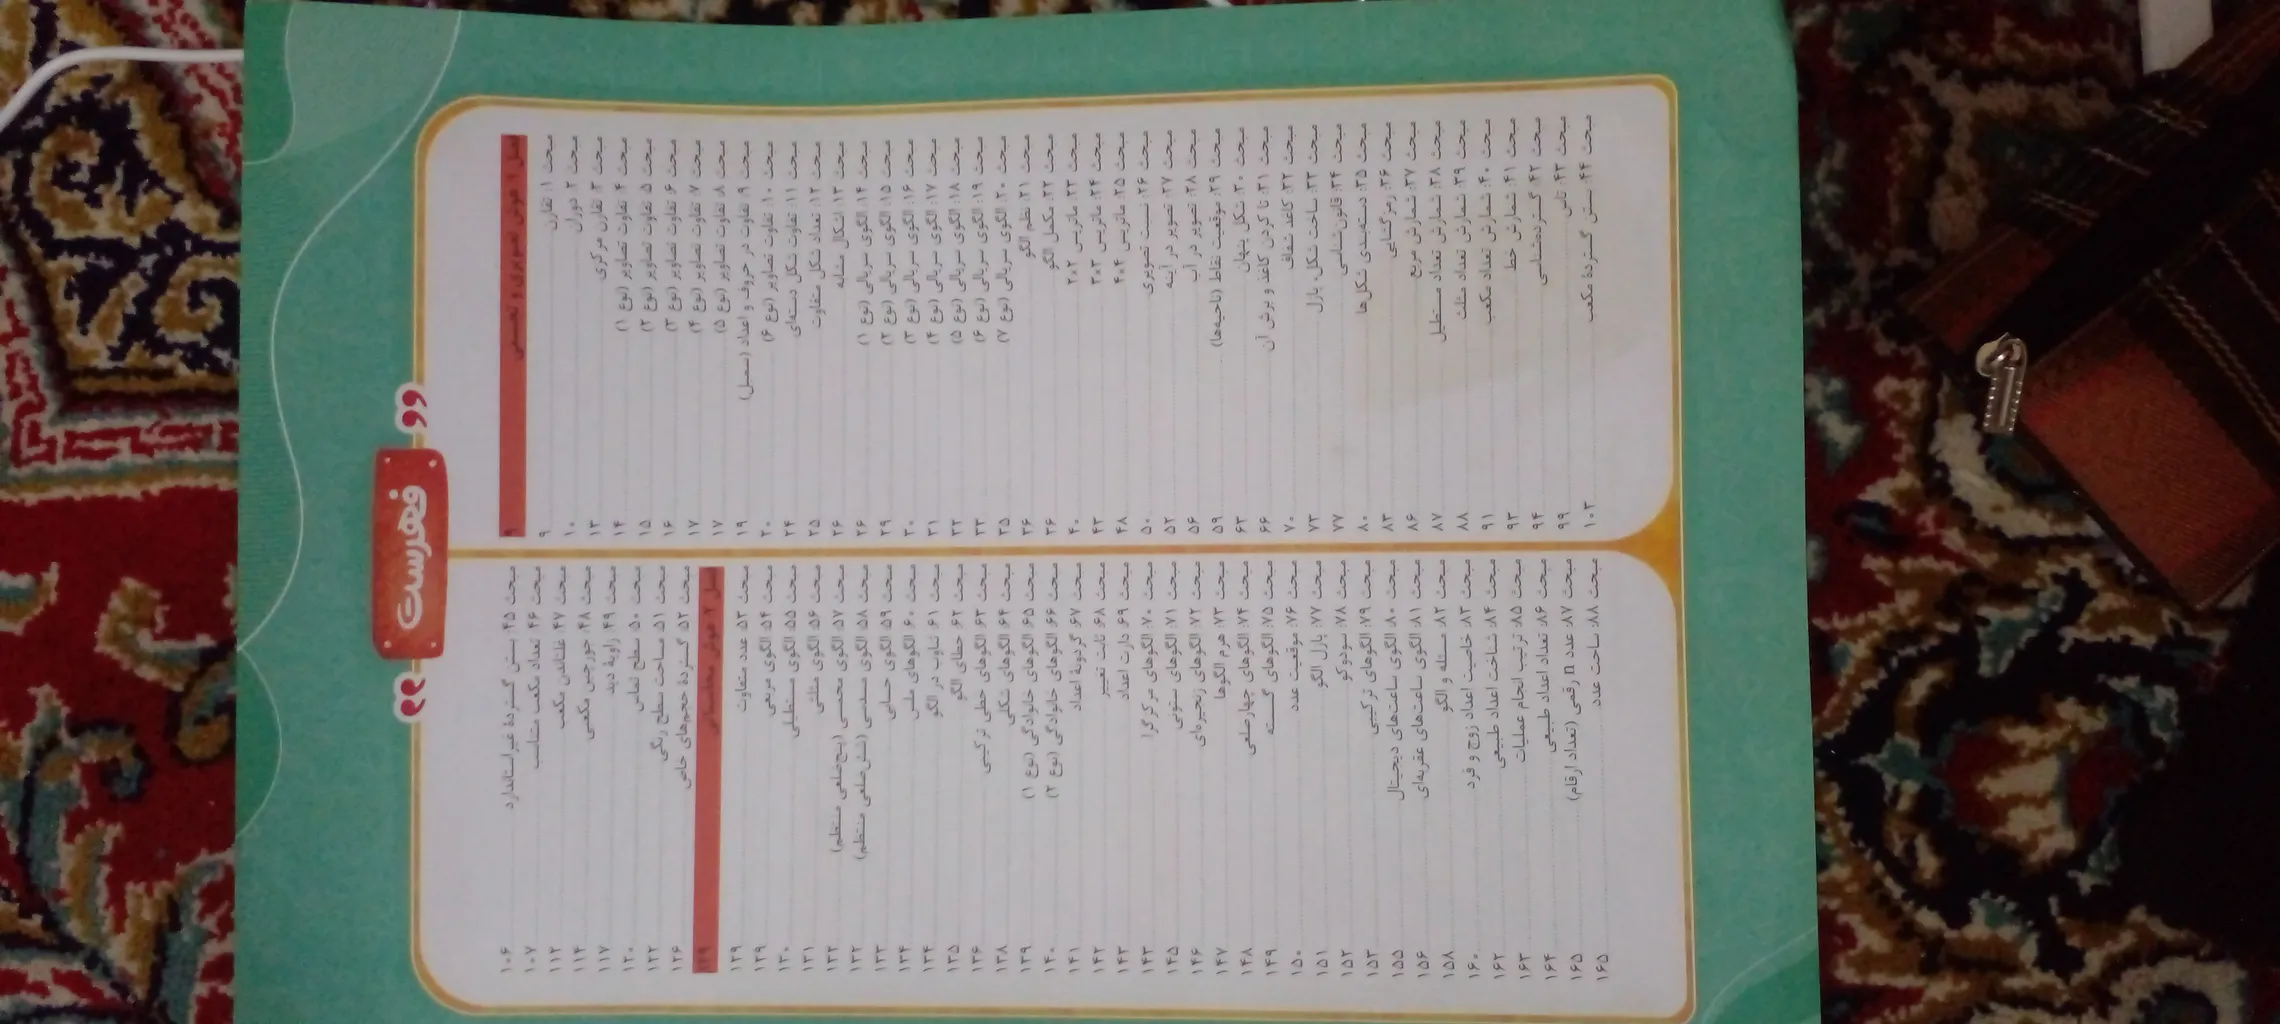 فهرست
فصل ۱ هوش تصویری و تجسمی ۹
مبحث ۱: تقارن ۹
مبحث ۲: دوران ۱۰
مبحث ۳: تقارن مرکزی ۱۳
مبحث ۴: تفاوت تصاویر (نوع ۱) ۱۴
مبحث ۵: تفاوت تصاویر (نوع ۲) ۱۵
مبحث ۶: تفاوت تصاویر (نوع ۳) ۱۶
مبحث ۷: تفاوت تصاویر (نوع ۴) ۱۷
مبحث ۸: تفاوت تصاویر (نوع ۵) ۱۷
مبحث ۹: تفاوت در حروف و اعداد (سمبل) ۱۹
مبحث ۱۰: تفاوت تصاویر (نوع ۶) ۲۰
مبحث ۱۱: تفاوت شکل دسته‌ای ۲۴
مبحث ۱۲: تعداد شکل متفاوت ۲۵
مبحث ۱۳: اشکال مشابه ۲۶
مبحث ۱۴: الگوی سریالی (نوع ۱) ۲۶
مبحث ۱۵: الگوی سریالی (نوع ۲) ۲۹
مبحث ۱۶: الگوی سریالی (نوع ۳) ۳۰
مبحث ۱۷: الگوی سریالی (نوع ۴) ۳۱
مبحث ۱۸: الگوی سریالی (نوع ۵) ۳۲
مبحث ۱۹: الگوی سریالی (نوع ۶) ۳۳
مبحث ۲۰: الگوی سریالی (نوع ۷) ۳۵
مبحث ۲۱: نظم الگو ۳۶
مبحث ۲۲: مکمل الگو ۳۶
مبحث ۲۳: ماتریس ۲×۲ ۴۰
مبحث ۲۴: ماتریس ۳×۳ ۴۳
مبحث ۲۵: ماتریس ۴×۴ ۴۸
مبحث ۲۶: نسبت تصویری ۵۰
مبحث ۲۷: تصویر در آینه ۵۲
مبحث ۲۸: تصویر در آب ۵۶
مبحث ۲۹: موقعیت نقاط (ناحیه‌ها) ۵۹
مبحث ۳۰: شکل پنهان ۶۳
مبحث ۳۱: تا کردن کاغذ و برش آن ۶۶
مبحث ۳۲: کاغذ شفاف ۷۰
مبحث ۳۳: ساخت شکل، پازل ۷۳
مبحث ۳۴: قانون‌شناسی ۷۷
مبحث ۳۵: دسته‌بندی شکل‌ها ۸۰
مبحث ۳۶: رمزگشایی ۸۳
مبحث ۳۷: شمارش مربع ۸۶
مبحث ۳۸: شمارش تعداد مستطیل ۸۷
مبحث ۳۹: شمارش تعداد مثلث ۸۸
مبحث ۴۰: شمارش تعداد مکعب ۹۱
مبحث ۴۱: شمارش خط ۹۳
مبحث ۴۲: گسترده‌شناسی ۹۴
مبحث ۴۳: تاس ۹۹
مبحث ۴۴: بستن گستردهٔ مکعب ۱۰۲
مبحث ۴۵: بستن گستردهٔ غیراستاندارد ۱۰۶
مبحث ۴۶: تعداد مکعب متناسب ۱۰۷
مبحث ۴۷: غلتاندن مکعب ۱۱۲
مبحث ۴۸: جورچین مکعبی ۱۱۴
مبحث ۴۹: زاویهٔ دید ۱۱۷
مبحث ۵۰: سطح تماس ۱۲۰
مبحث ۵۱: مساحت سطح رنگی ۱۲۲
مبحث ۵۲: گستردهٔ حجم‌های خاص ۱۲۶
فصل ۲ هوش محاسباتی ۱۲۹
مبحث ۵۳: عدد متفاوت ۱۲۹
مبحث ۵۴: الگوی مربعی ۱۲۹
مبحث ۵۵: الگوی مستطیلی ۱۳۰
مبحث ۵۶: الگوی مثلثی ۱۳۱
مبحث ۵۷: الگوی مخمسی (پنج‌ضلعی منتظم) ۱۳۲
مبحث ۵۸: الگوی مسدسی (شش‌ضلعی منتظم) ۱۳۲
مبحث ۵۹: الگوی حسابی ۱۳۳
مبحث ۶۰: الگوهای ملس ۱۳۴
مبحث ۶۱: تناوب در الگو ۱۳۴
مبحث ۶۲: خطای الگو ۱۳۵
مبحث ۶۳: الگوهای خطی ترکیبی ۱۳۶
مبحث ۶۴: الگوهای شکلی ۱۳۸
مبحث ۶۵: الگوهای خانوادگی (نوع ۱) ۱۳۹
مبحث ۶۶: الگوهای خانوادگی (نوع ۲) ۱۴۰
مبحث ۶۷: گردونهٔ اعداد ۱۴۱
مبحث ۶۸: ثابت تغییر ۱۴۲
مبحث ۶۹: دارت اعداد ۱۴۳
مبحث ۷۰: الگوهای مرکزگرا ۱۴۳
مبحث ۷۱: الگوهای ستونی ۱۴۵
مبحث ۷۲: الگوهای زنجیره‌ای ۱۴۶
مبحث ۷۳: هرم الگوها ۱۴۷
مبحث ۷۴: الگوهای چهارضلعی ۱۴۸
مبحث ۷۵: الگوهای گسسته ۱۴۹
مبحث ۷۶: موقعیت عدد ۱۵۰
مبحث ۷۷: پازل الگو ۱۵۱
مبحث ۷۸: سودوکو ۱۵۲
مبحث ۷۹: الگوهای ترکیبی ۱۵۳
مبحث ۸۰: الگوی ساعت‌های دیجیتال ۱۵۵
مبحث ۸۱: الگوی ساعت‌های عقربه‌ای ۱۵۶
مبحث ۸۲: مسئله و الگو ۱۵۸
مبحث ۸۳: خاصیت اعداد زوج و فرد ۱۶۰
مبحث ۸۴: شناخت اعداد طبیعی ۱۶۲
مبحث ۸۵: ترتیب انجام عملیات ۱۶۳
مبحث ۸۶: تعداد اعداد طبیعی ۱۶۴
مبحث ۸۷: عدد n رقمی (تعداد ارقام) ۱۶۵
مبحث ۸۸: ساخت عدد ۱۶۵